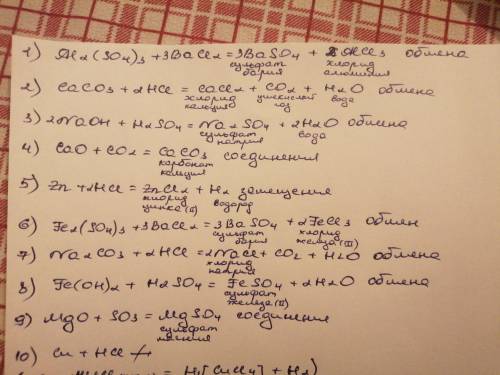 1) Al₂(SO₄)₃ + 3BaCl₂ = 3BaSO₄ + 2AlCl₃ обмена
сульфат бария хлорид алюминия
2) CaCO₃ + 2HCl = CaCl₂ + CO₂ + H₂O обмена
хлорид кальция углекислый газ вода
3) 2NaOH + H₂SO₄ = Na₂SO₄ + 2H₂O обмена
сульфат натрия вода
4) CaO + CO₂ = CaCO₃ соединения
карбонат кальция
5) Zn + 2HCl = ZnCl₂ + H₂ замещения
хлорид цинка (II) водород
6) Fe₂(SO₄)₃ + 3BaCl₂ = 3BaSO₄ + 2FeCl₃ обмен
сульфат бария хлорид железа (III)
7) Na₂CO₃ + 2HCl = 2NaCl + CO₂ + H₂O обмена
хлорид натрия
8) Fe(OH)₂ + H₂SO₄ = FeSO₄ + 2H₂O обмена
сульфат железа (II)
9) MgO + SO₃ = MgSO₄ соединения
сульфат магния
10) Cu + HCl ≠
= H₂[CuCl₄] + H₂)